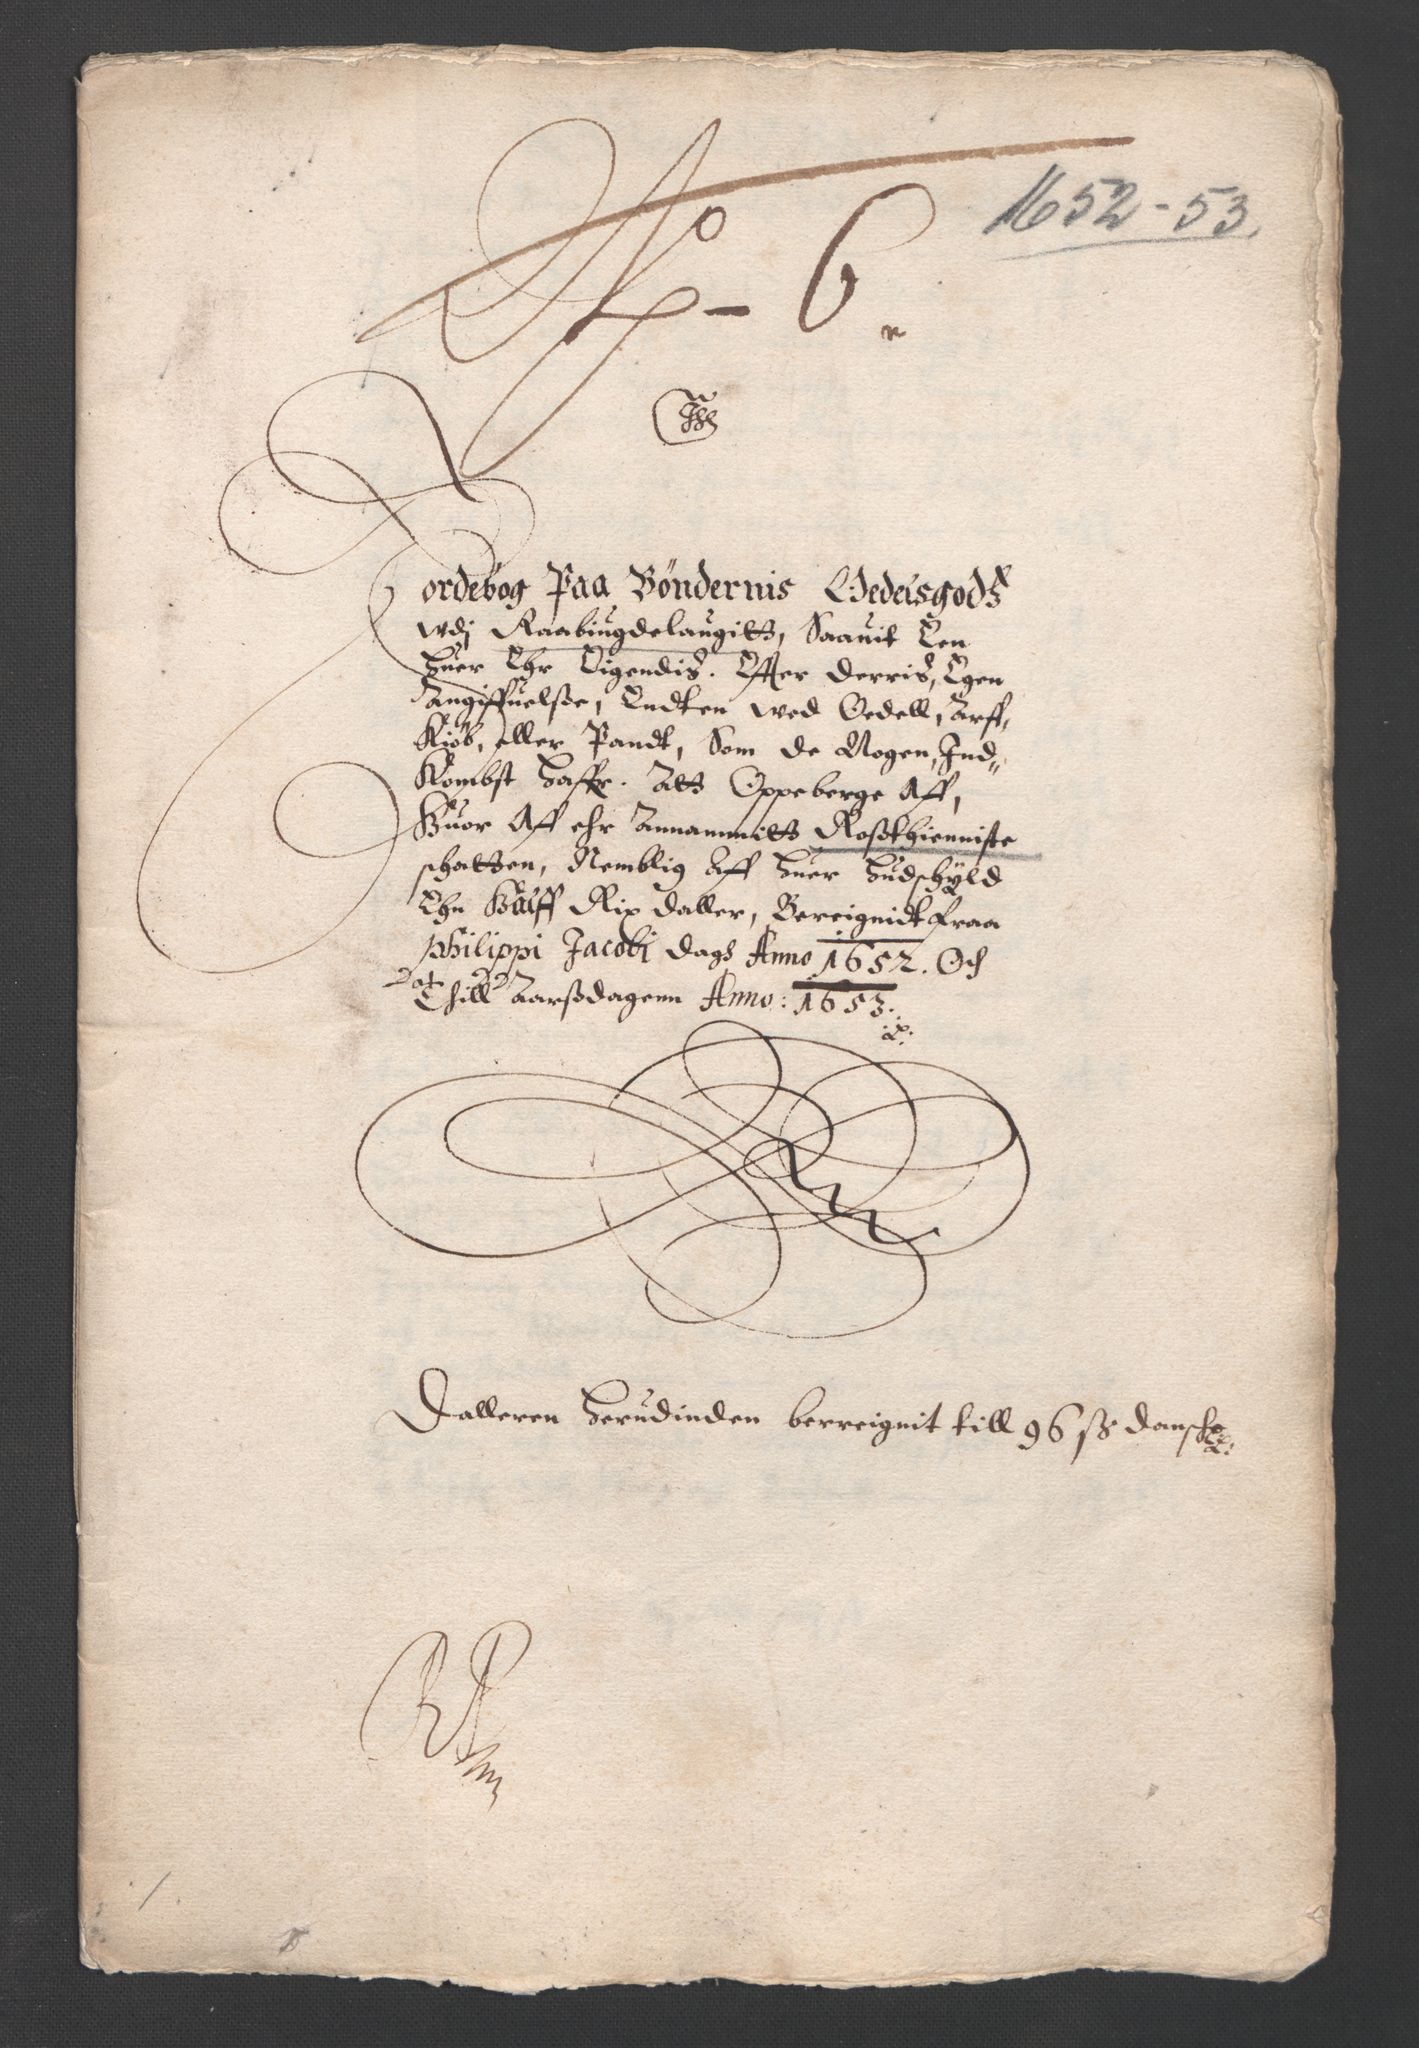 1652-53.
No - 6
Jordebog Paa Bøndernis Oedelsgodz
wdj Raabiugdelaugitt, Saauit Een
huer Ehr Eigendis. Effter derris, Egen
Angiffuelsse, Endten wed Oedell, Arff,
Kiøb, eller Pandt, Som de Nogen, Ind-,
Kombst haffr. Att Oppeberge Aff,
Huor Aff ehr Annammitt Rosthienniste
schatten, Nemblig Aff huer hudschyld
Ehn Halff Rix daller, Bereignidt fraa
Philippi Jacobi dags Anno 1652. Och
Thill Aarssdagenn Anno: 1653.
Dalleren herudinden berreignit till 96 ss dansche